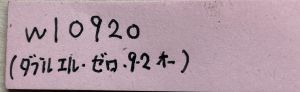 wl0920
(ダブルエル・ゼロ・9・2オー)